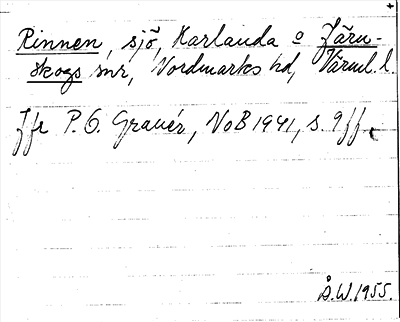 Rinnen, sjö, Karlanda o Järn-
skogs snr, Nordmarks hd, Värml. l.
Jfr P. G. Granér, NoB 1941, s. 9 ff.
Å.W. 1955.